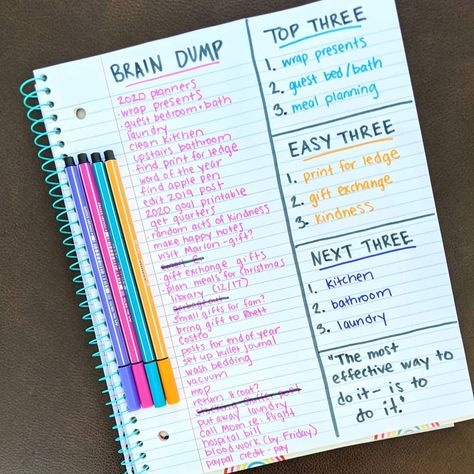 BRAIN DUMP
2020 planners
wrap presents
guest bedroom + bath
laundry
clean kitchen
upstairs bathroom
find print for ledge
word of the year
find apple pen
edit 2019 post
2020 goal printable
get quarters
random acts of kindness
make happy notes
visit Marion - gift?
gift exchange gifts
plan meals for christmas
library (12/17)
small gifts for fam?
bring gift to Rhett
Costco
posts for end of year
set up bullet journal
wash bedding
vacuum
mop
return it coat?
put away laundry
call Mom re: flight
hospital bill
blood work (by Friday)
paypal credit - pay
TOP THREE
1. wrap presents
2. guest bed/bath
3. meal planning
EASY THREE
1. print for ledge
2. gift exchange
3. kindness
NEXT THREE
1. kitchen
2. bathroom
3. laundry
"The most
effective way to
do it - is to
do it."